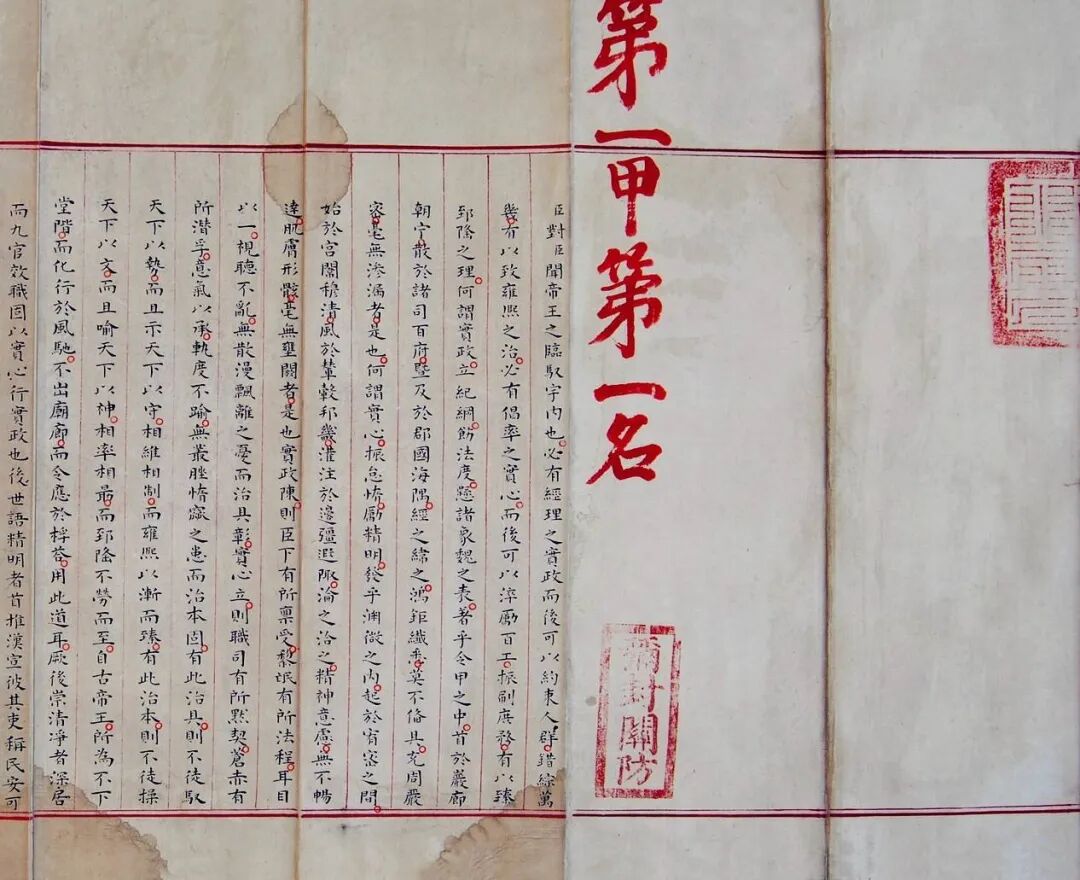 第一甲第一名
彌封關防
臣對臣聞帝王之臨馭宇內也必有經理之實政而後可以約束人群錯綜萬
幾有以致雍熙之治必有倡率之實心而後可以淬厲百工振刷庶務有以臻
郅隆之理何謂實政立紀綱飭法度懸諸象魏之表著乎令甲之中首於巖廊
朝宁散於諸司百府暨及於郡國海隅經之緯之鴻鉅纖悉莫不俻具充周嚴
密毫無滲漏者是也何謂實心振怠惰勵精明發乎淵微之內起於宥密之間
始於宮闈穆清風於輦轂邦畿灌注於邊疆遐陬淪之洽之精神意慮無不暢
達肌膚形骸毫無壅閼者是也實政陳則臣下有所稟受黎氓有所法程耳目
以一視聽不亂無散漫飄離之憂而治具彰實心立則職司有所默契蒼赤有
所潛孚意氣以承軌度不踰無叢脞惰窳之患而治本固有此治具則不徒馭
天下以勢而且示天下以守相維相制而雍熙以漸而臻有此治本則不徒操
天下以文而且喻天下以神相率相最而郅隆不勞而至自古帝王所為不下
堂階而化行於風馳不出廟廊而令應於桴答用此道耳厥後崇清凈者深居
而九官效職固以實心行實政也後世語精明者首推漢宣彼其吏稱民安可